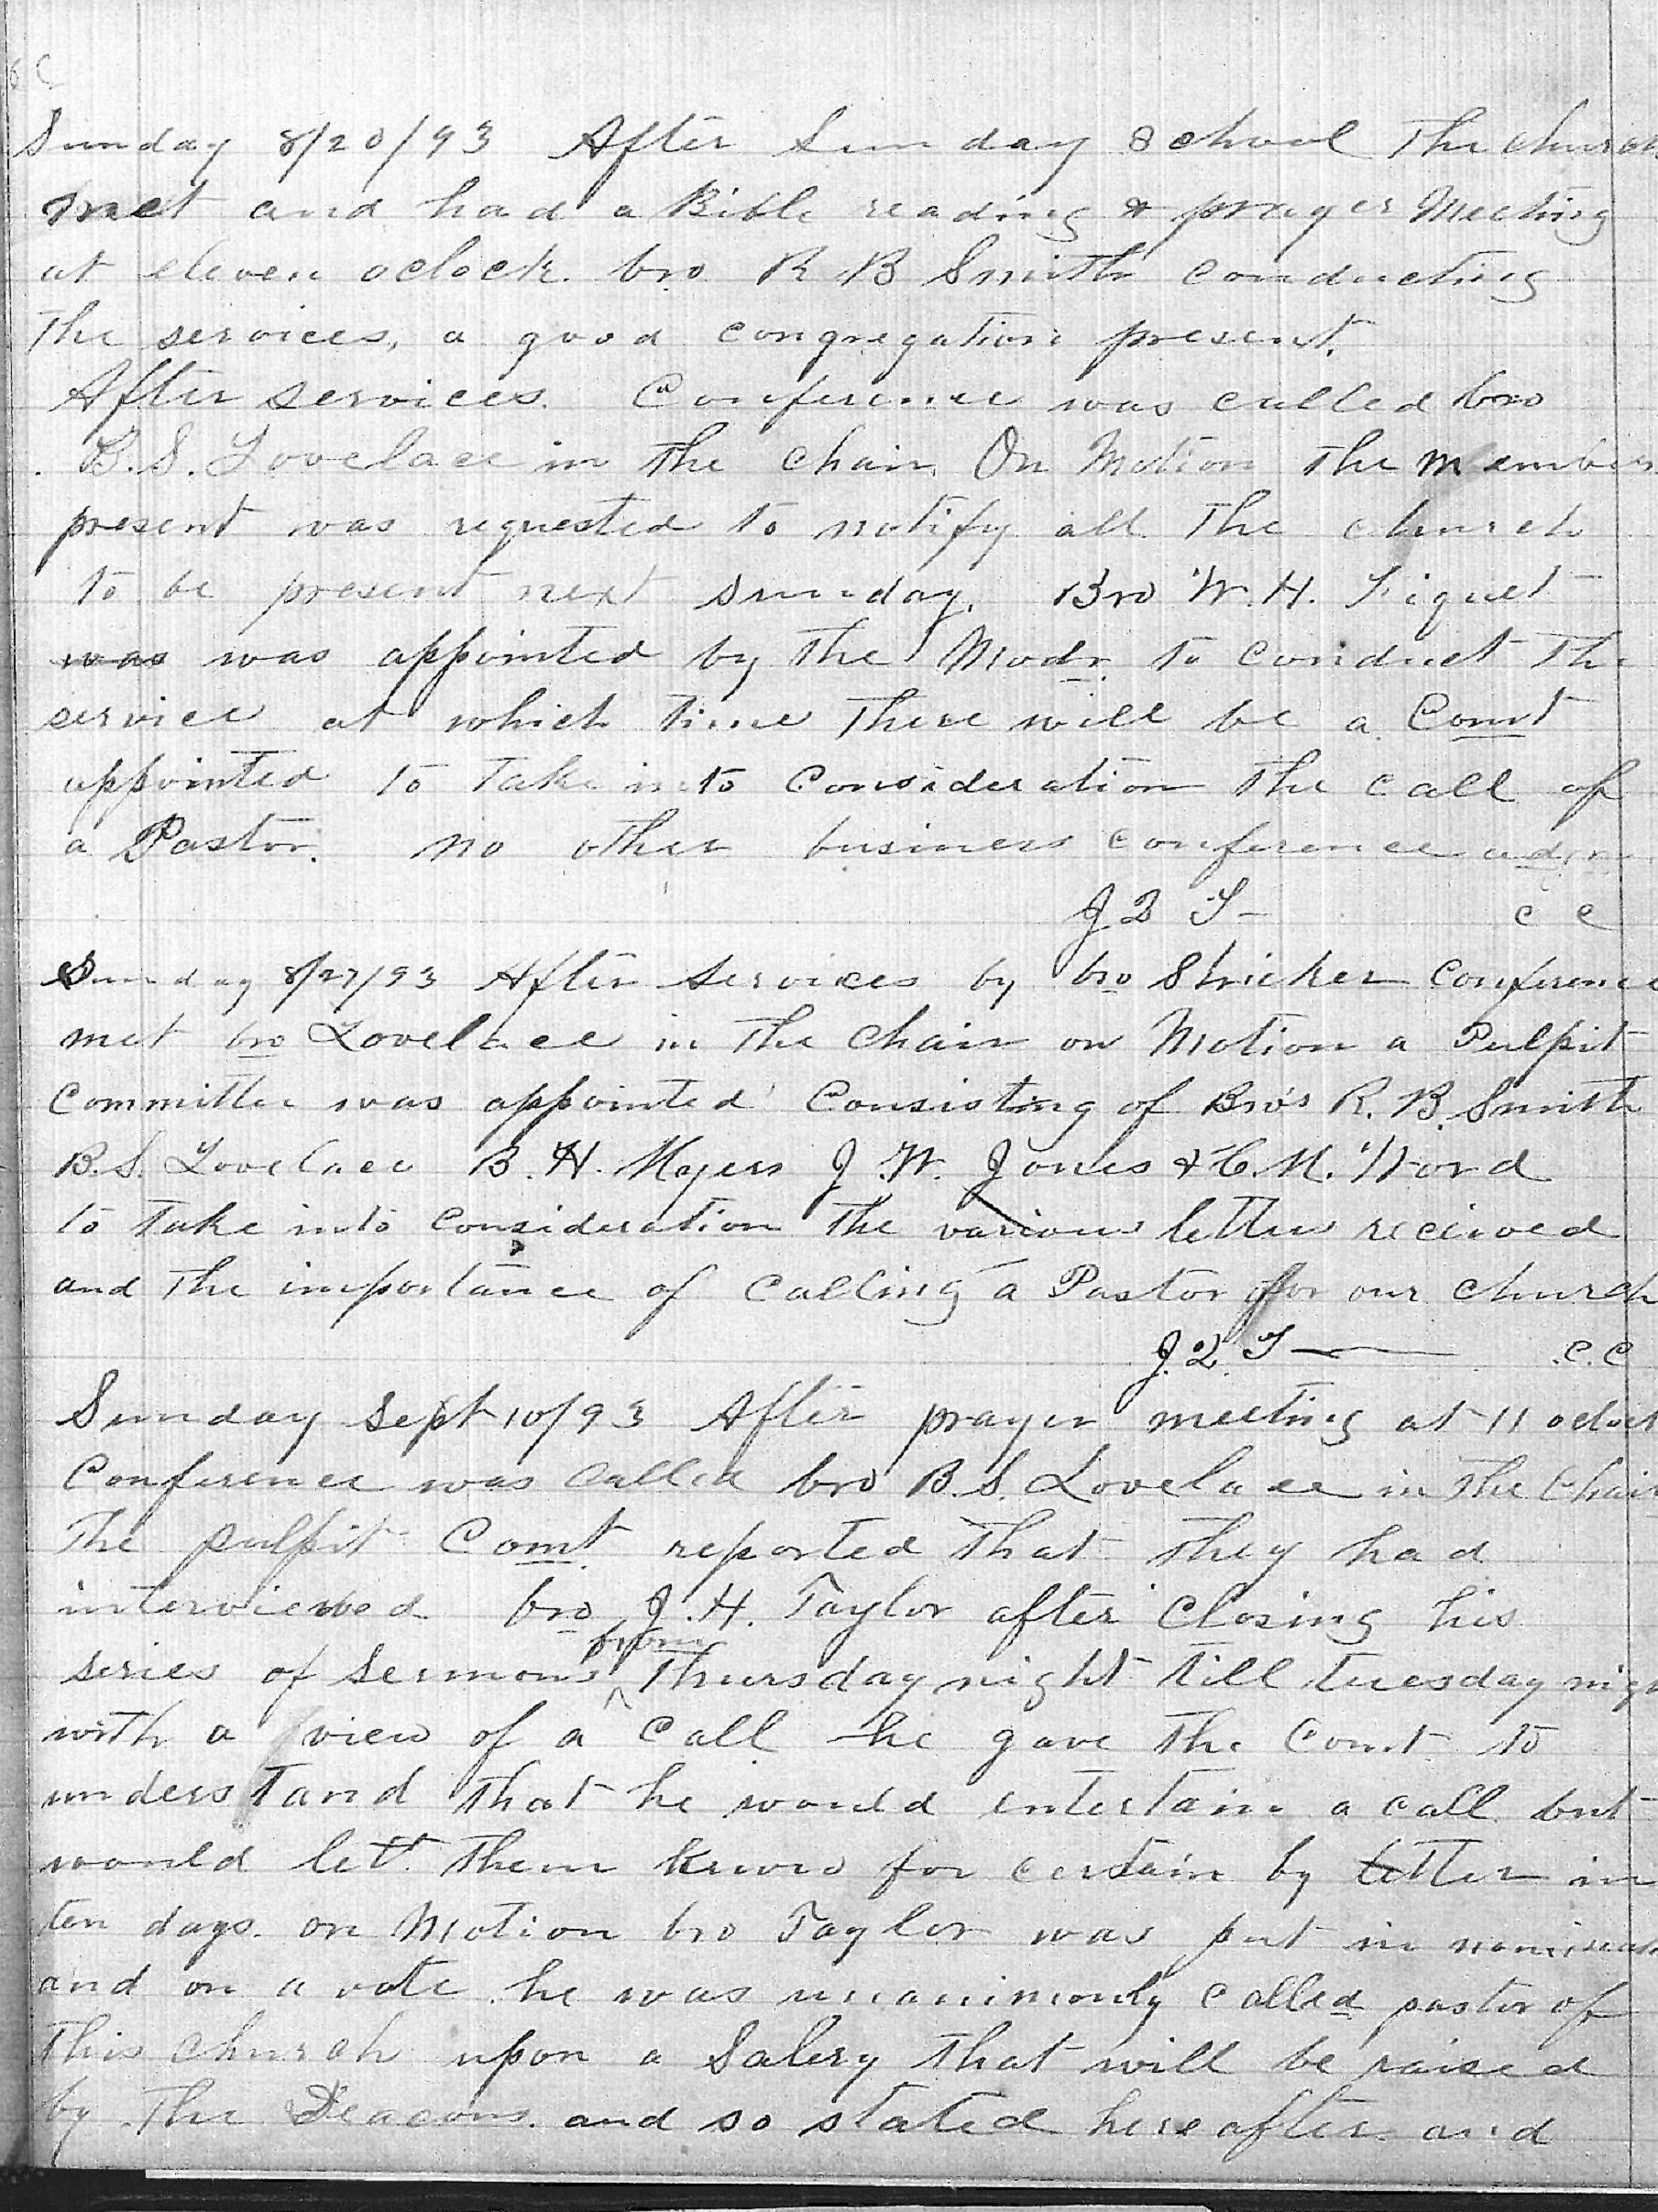 Sunday 8/20/93 After Sunday School The church
met and had a Bible reading & prayer Meeting
at eleven oclock. bro R B Smith conducting
The services, a good congregation present.
After services. Conference was called bro
B.S. Lovelace in the chair. On Motion the members
present was requested to notify all The church
to be present next sunday. Bro W.H.
was was appointed by the Modr. to conduct the
service at which time there will be a Comt
appointed to take into Consideration the call of
a Pastor. no other business conference
J Q T - C C
Sunday 8/27/93 After services by bro Stricker Conference
met bro Lovelace in the Chair on Motion a Pulpit
Committee was appointed Consisting of Bro's R. B. Smith
B.S. Lovelace B. H. Myers J. W. Jones & C. M. Word
to take into consideration the various letters recieved
and the importance of calling a Pastor for our church
J. Q. T — C.C
Sunday Sept 10/93 After prayer meeting at 11 oclock
Conference was called bro B.S. Lovelace in the Chair
The pulpit Comt reported that they had
interviewed bro J. H. Taylor after Closing his
series of Sermons from Thursday night till tuesday night
with a view of a call he gave the Comt to
understand that he would entertain a call but
would let them know for certain by letter in
ten days. on Motion bro Taylor was put in
and on a vote he was unanimously called pastor of
This church upon a Salery that will be raised
by The Deacons. and so stated hereafter. and